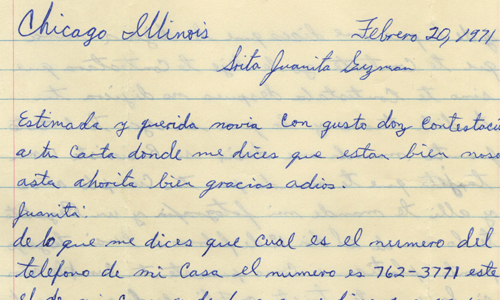 Chicago Illinois Febrero 20, 1971
Srita Juanita Guzman
Estimada y querida novia con gusto doy contestaci
a tu carta donde me dices que estan bien noso
asta ahorita bien gracias adios.
Juanita:
de lo que me dices que cual es el numero del
telefono de mi casa el numero es 762-3771 este